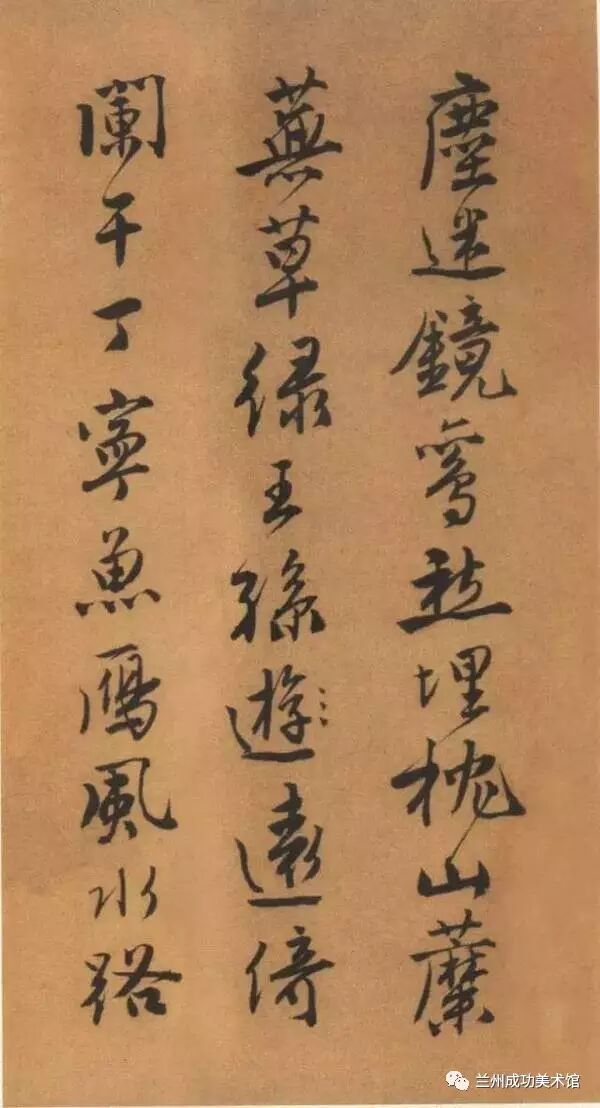 塵迷鏡鸞愁埋枕山蘼
蕪草緑王孫遊遠倚
闌干丁寧魚鴈風水路
兰州成功美术馆